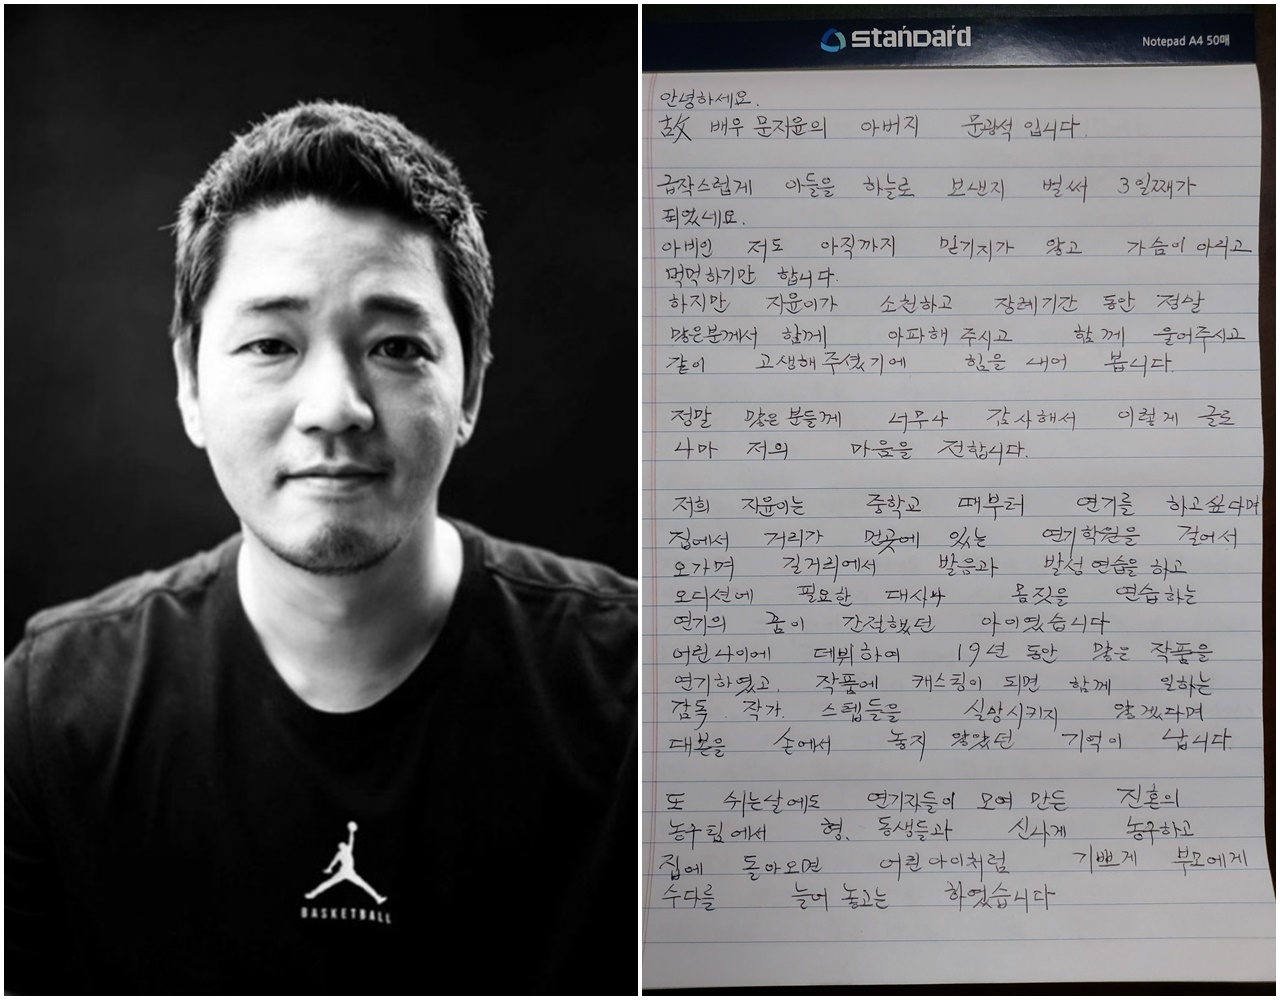 BASKETBALL
standard
Notepad A4 50매
안녕하세요.
故 배우 문지윤의 아버지 문광석 입니다.
급작스럽게 아들을 하늘로 보낸지 벌써 3일째가
되었네요.
아비인 저도 아직까지 믿기지가 않고 가슴이 아리고
먹먹하기만 합니다.
하지만 지윤이가 소천하고 장례기간 동안 정말
많은분께서 함께 아파해 주시고 함께 울어주시고
같이 고생해 주셨기에 힘을 내어 봅니다.
정말 많은 분들께 너무나 감사해서 이렇게 글로
나마 저의 마음을 전합니다.
저희 지윤이는 중학교 때부터 연기를 하고싶다며
집에서 거리가 먼곳에 있는 연기학원을 걸어서
오가며 길거리에서 발음과 발성 연습을 하고
오디션에 필요한 대사나 몸짓을 연습하는
연기의 꿈이 간절했던 아이였습니다
어린나이에 데뷔하여 19년 동안 많은 작품을
연기하였고, 작품에 캐스팅이 되면 함께 일하는
감독 작가 스텝들을 실망시키지 않겠다며
대본을 손에서 놓지 않았던 기억이 납니다.
또 쉬는날에도 연기자들이 모여 만든 진혼의
농구팀에서 형, 동생들과 신나게 농구하고
집에 돌아오면 어린아이처럼 기쁘게 부모에게
수다를 늘어 놓고는 하였습니다